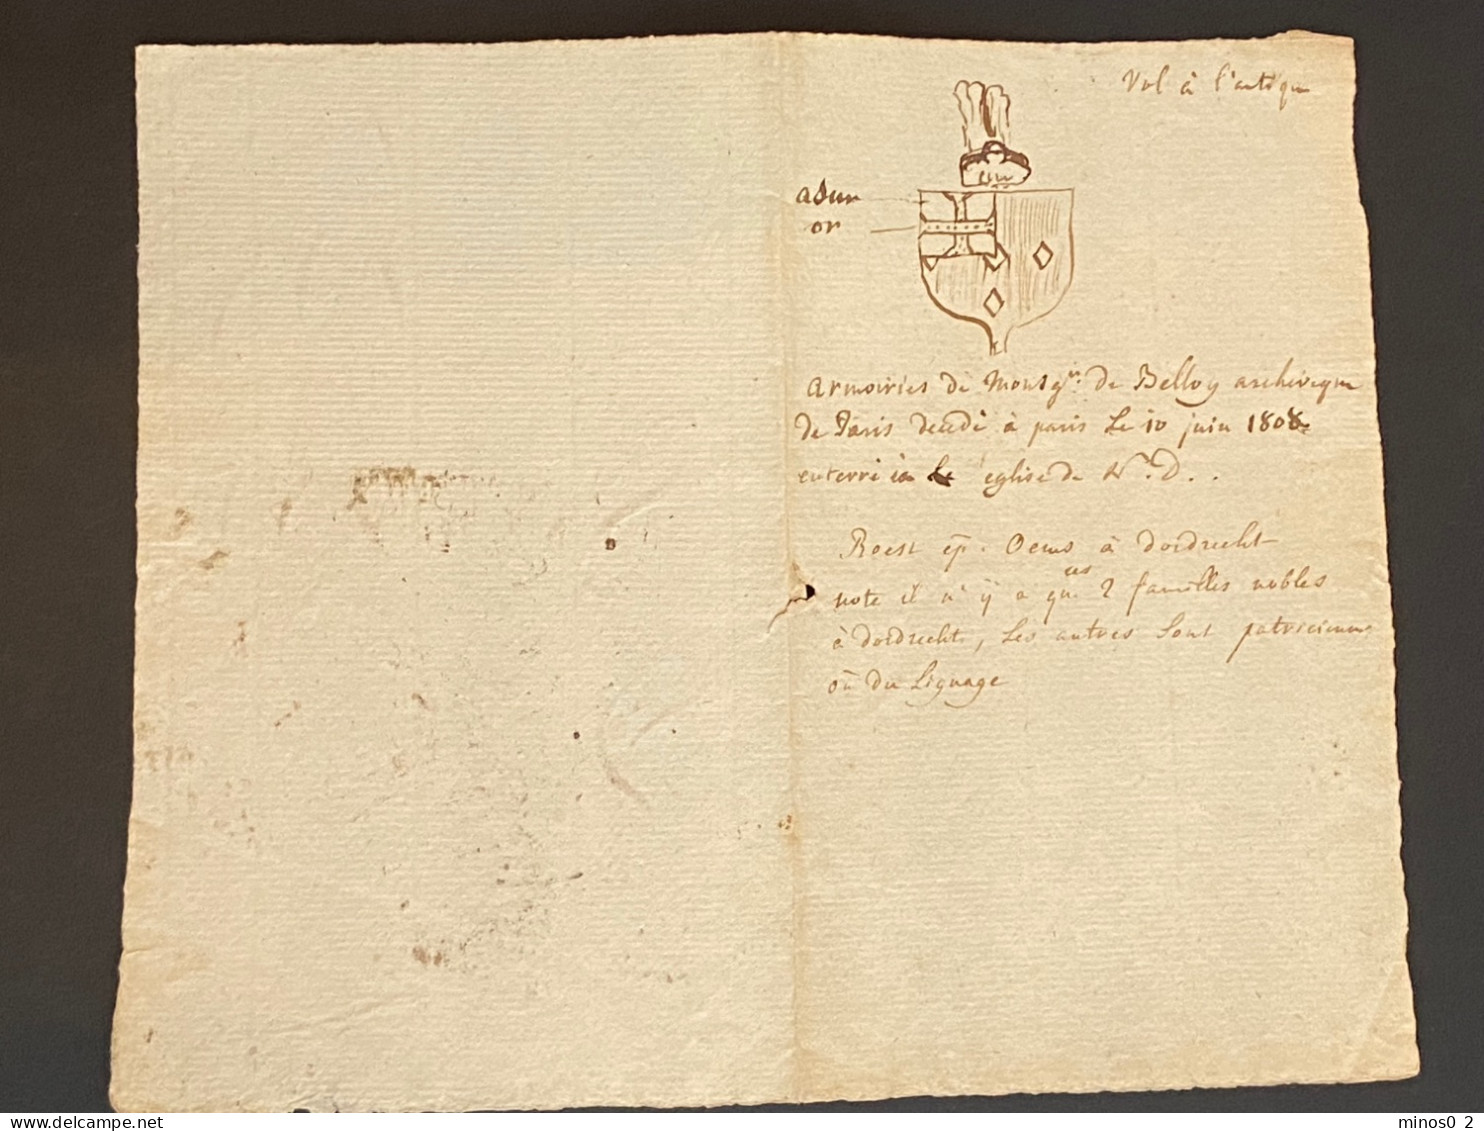 Vol à l'antique
adur
or
armoiries de Monsgr. de Belloy archeveque
de Paris decedé à paris Le 10 juin 1808
enterré en Le eglise de N. D. .
Roest ep. Oems à dordrecht
note il n'ÿ a que ces 2 familles nobles
à dordrecht, Les autres Sont patriciennes
où du Lignage
minos0 2